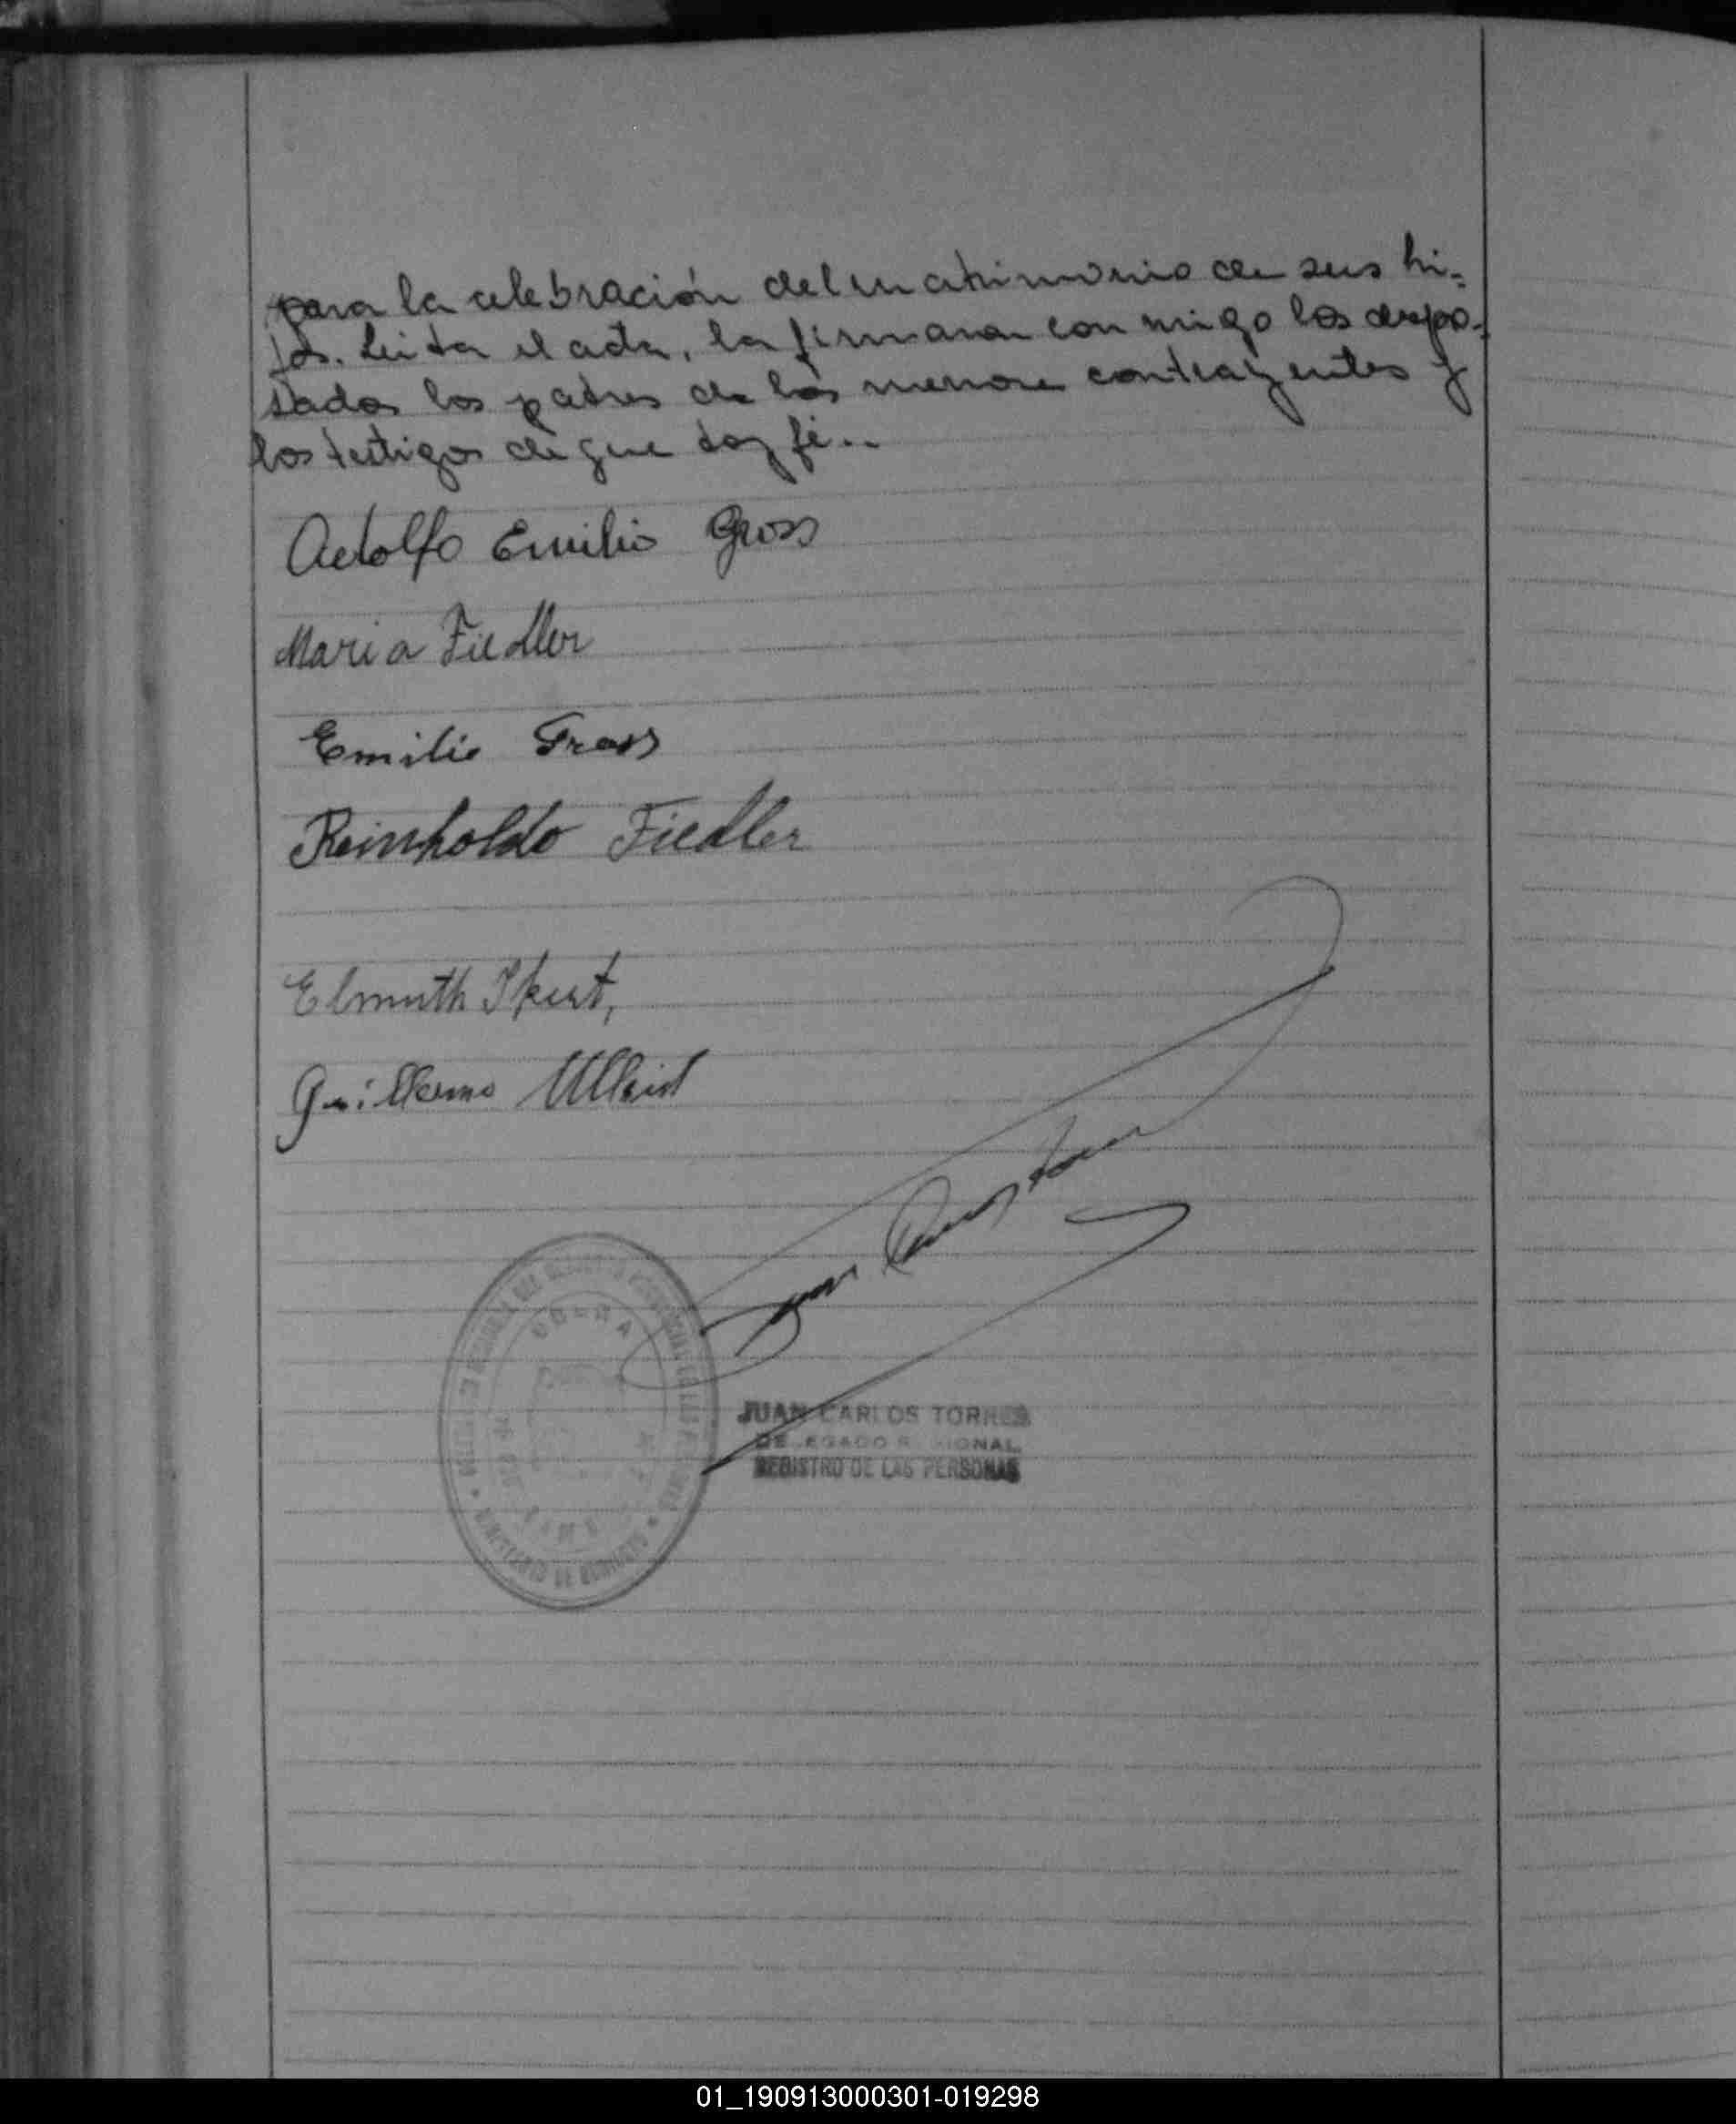 para la celebración del matrimonio de sus hi=
jos. Leída el acta, la firmaran con migo los despo=
sados los padres de los menore contrayentes y
los testigos de que doy fé..
Adolfo Emilio Gross
Maria Fiedler
Emilio Gross
Reinholdo Fiedler
Elmuth
Guillermo
Juan Carlos Torres
OBERA
MINISTERIO DE GOBIERNO
JUAN CARLOS TORRES
DELEGADO REGIONAL
REGISTRO DE LAS PERSONAS
01_190913000301-019298